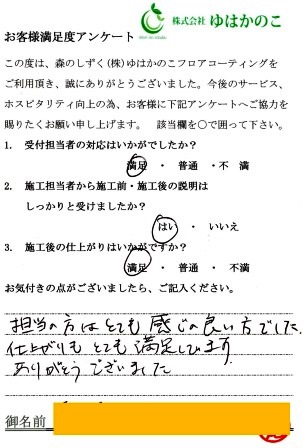 株式会社 ゆはかのこ
お客様満足度アンケート
この度は、森のしずく(株)ゆはかのこフロアコーティングを
ご利用頂き、誠にありがとうございました。今後のサービス、
ホスピタリティ向上の為、お客様に下記アンケートへご協力を
賜りたくお願い申し上げます。 該当欄を○で囲って下さい。
1. 受付担当者の対応はいかがでしたか?
満足 ・ 普通 ・不 満
2. 施工担当者から施工前・施工後の説明は
しっかりと受けましたか?
はい ・ いいえ
3. 施工後の仕上がりはいかがですか?
満足 ・ 普通 ・ 不満
お気付きの点がございましたら、ご記入ください。
担当の方はとても感じの良い方でした
仕上がりもとても満足しています
ありがとうございました
御名前